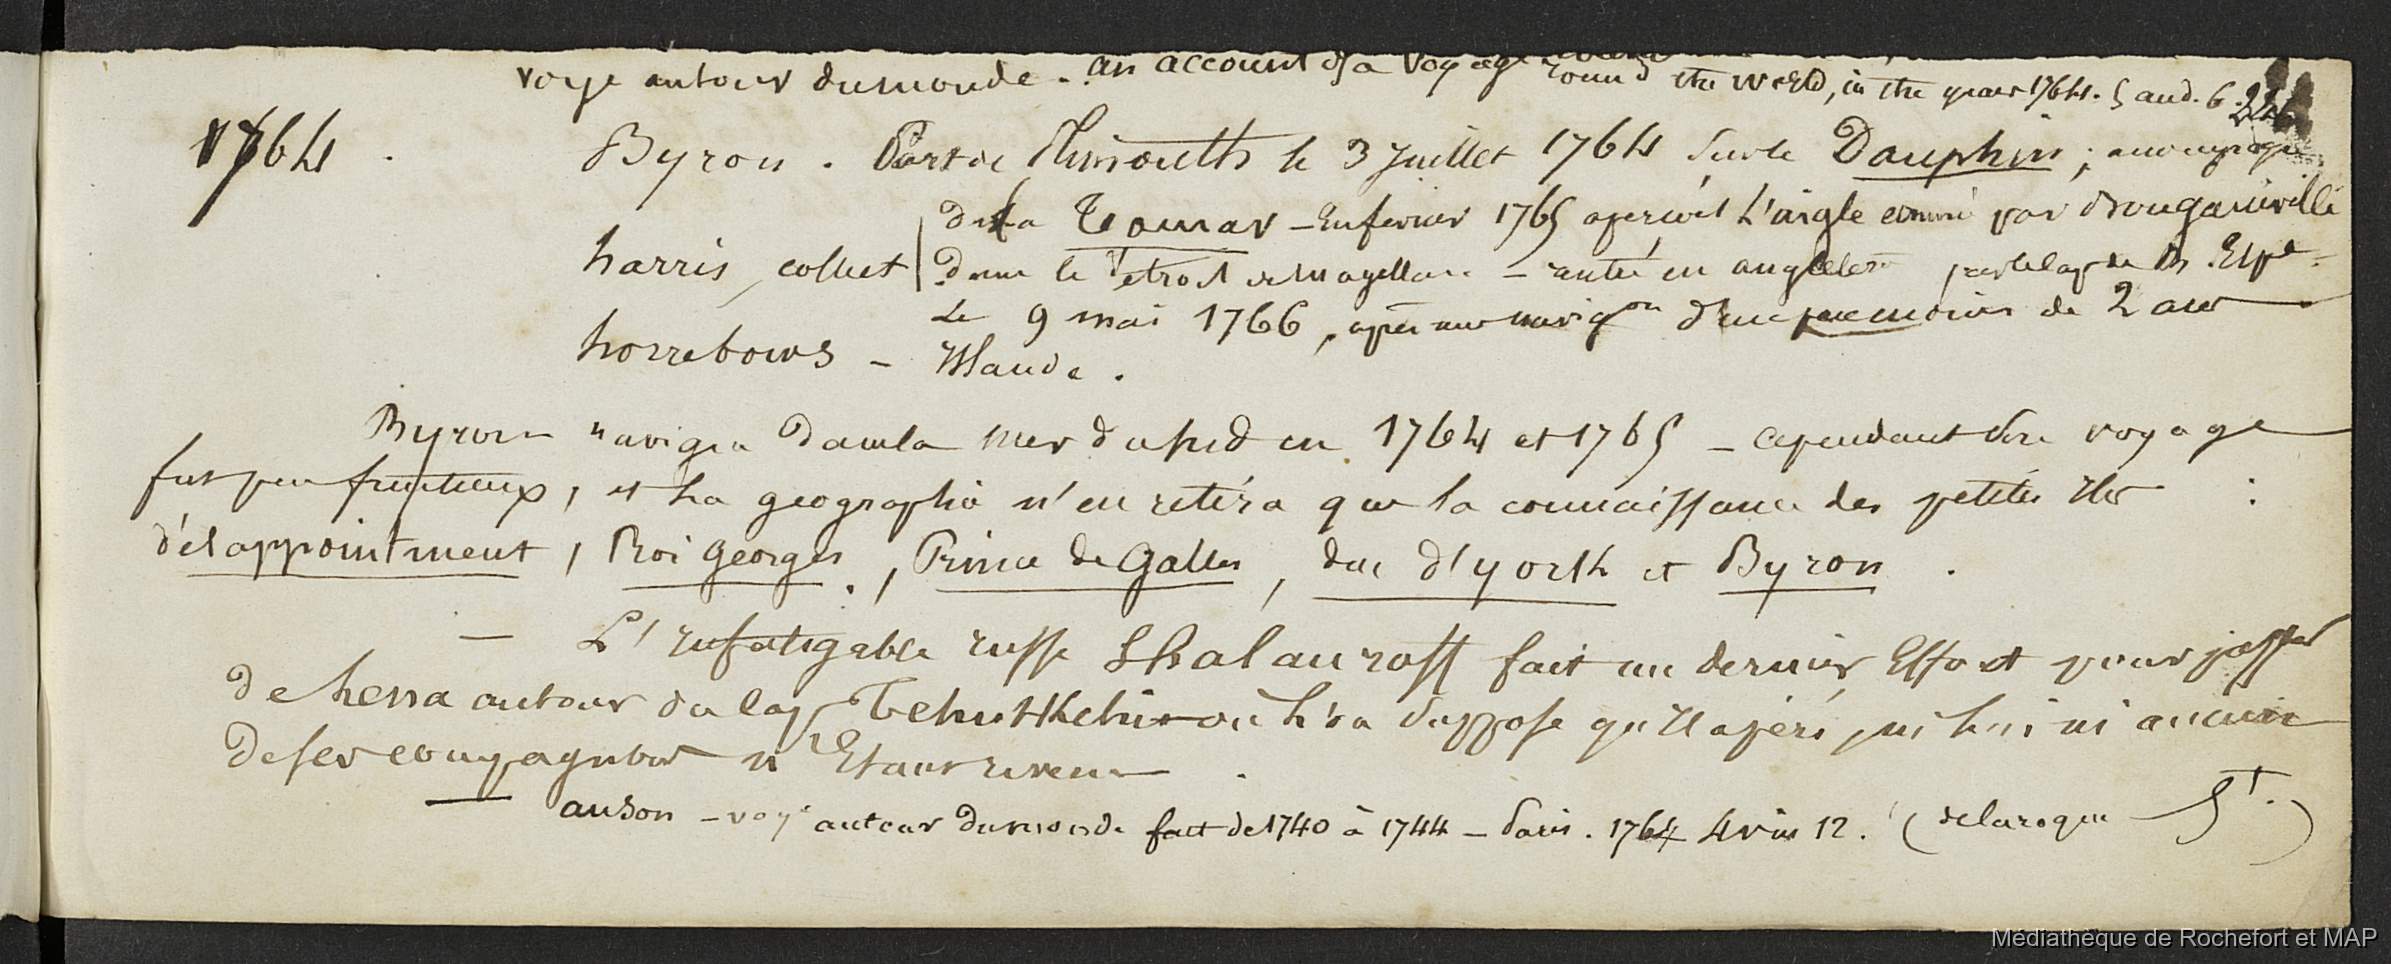 voye autour du monde - an account of a voyage round the world, in the years 1764. 5 and. 6.
1764.
Byron. Part de Plimouth le 3 Juillet 1764 sur le Dauphin ; accompagné
de la Tamar - En fevrier 1765 aperçoit L'aigle commé par Bougainville
harris, collect
dans le détroit de Magellan - rentre en angleterre par le cap de Bs Espce
Le 9 mai 1766, après une navigon d'un peu moins de 2 ans
horrebows - Islande.
Byron navigea dans la mer du sud en 1764 et 1765 - cependant son voyage
fut peu fructueux, et La geographie n'en retira que la connaissance des petites Iles :
désappointment, Roi georges, Prince de Galles, duc d'yorck et Byron.
- L'Infatigable russe Shalauroff fait un dernier Effort pour passer
de Lena autour du cap Tchutkchi où l'on suppose qu'Il a péri, ni lui ni aucun
de ses compagnons n'Etant revenu.
- anson - voye autour du monde fait de 1740 à 1744 - Paris. 1764 4 v in 12. (delaroque St.)
Médiathèque de Rochefort et MAP